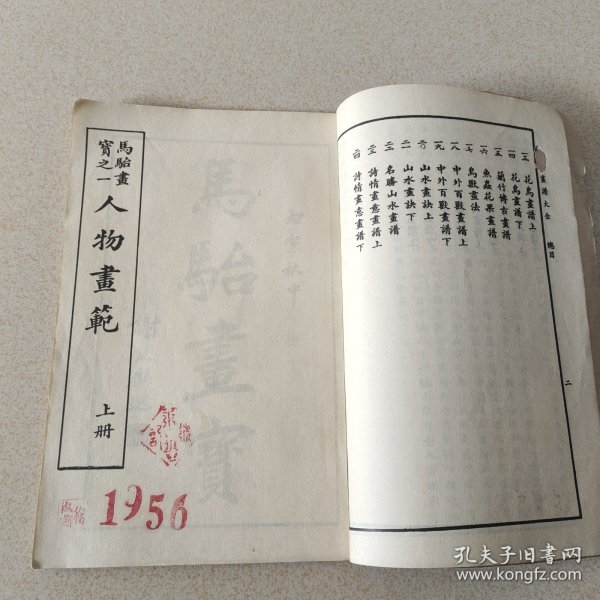 畫譜大全 總目
一三 花鳥畫譜上
一四 花鳥畫譜下
一五 蘭竹博古畫譜
一六 魚蟲花果畫譜
一七 鳥獸畫法
一八 中外百獸畫譜上
一九 中外百獸畫譜下
二〇 山水畫訣上
二一 山水畫訣下
二二 名勝山水畫譜
二三 詩情畫意畫譜上
二四 詩情畫意畫譜下
二
馬駘畫
寶之一
人物畫範
上册
馬駘畫寶
1956
孔夫子旧书网
www.kongfz.com